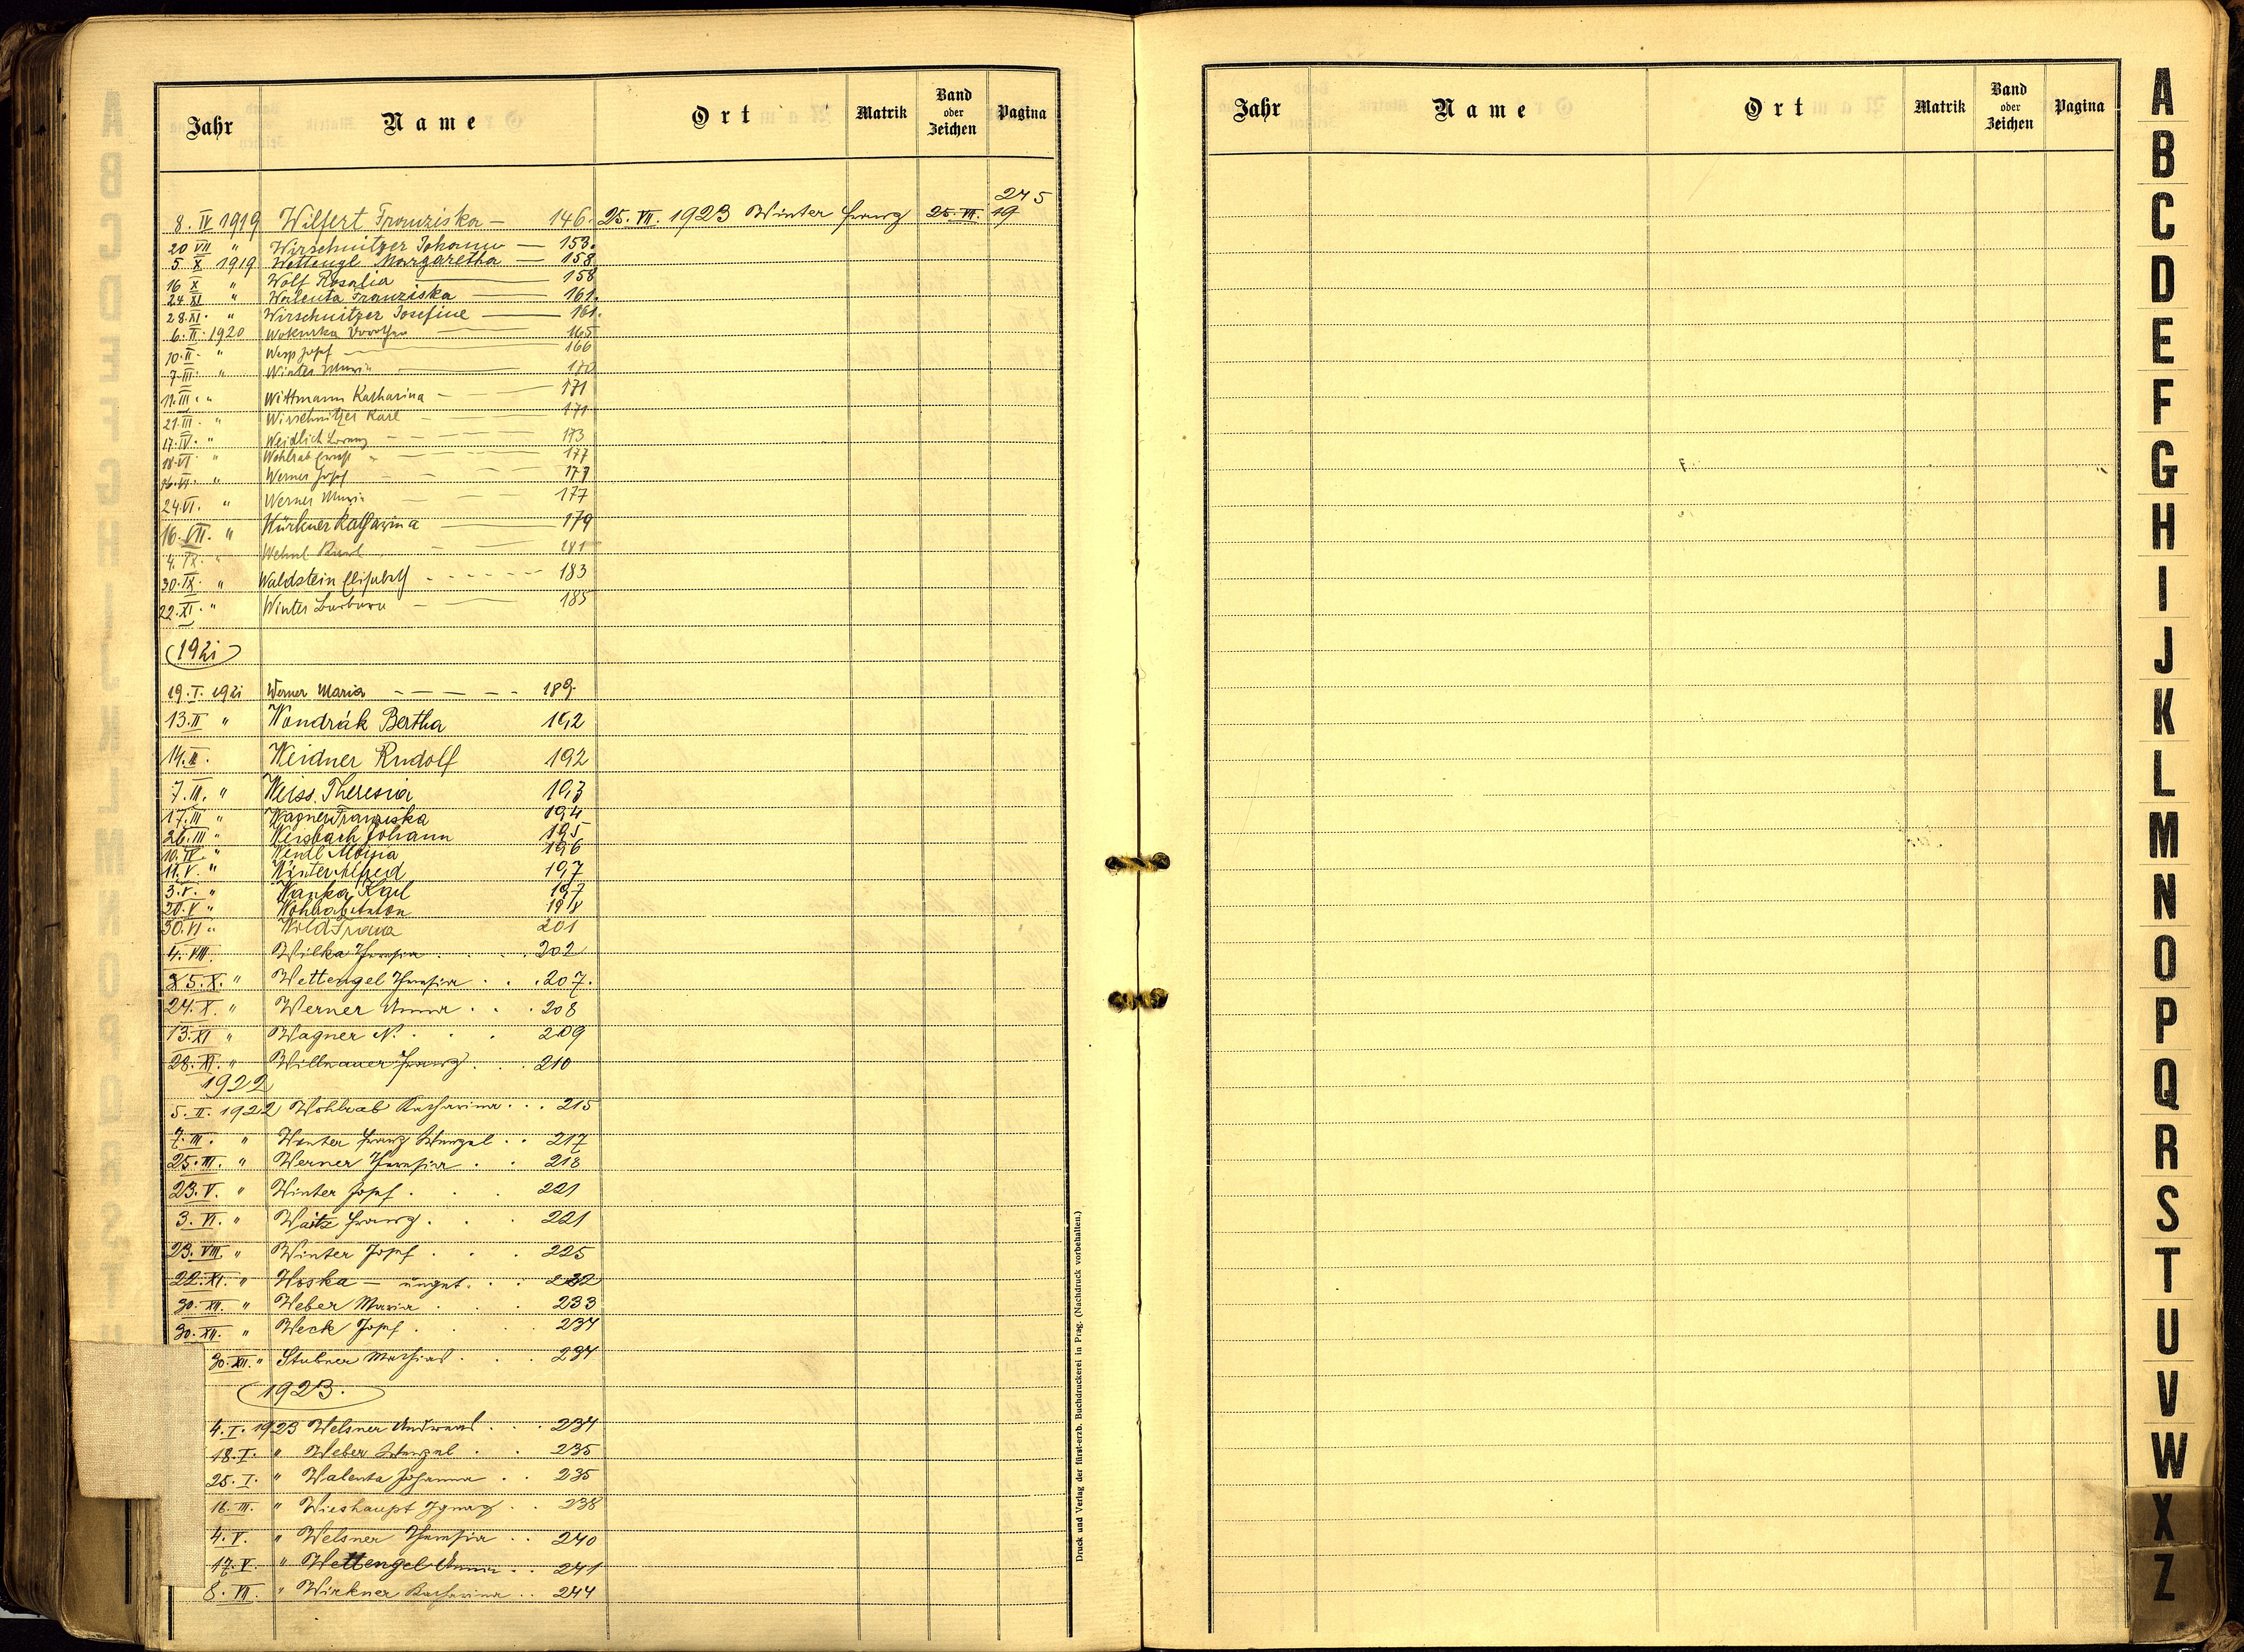 Jahr Name Ort Matrik Band oder Zeichen Pagina
245
8. IV 1919 Wilfert Franziska — 146. 25. VII. 1923 Winter Franz 25. VII. 19
20 VII " Wirschnitzer Johann — 153.
5. X 1919 Wettengl Margaretha — 158
16 X " Wolf Rosalia — 158
24 XI " Walenta Franziska — 161.
28. XI. " Wirschnitzer Josefine — 161.
6. II. 1920 Wokurka Dorothea — 165
10. II. " Wesp Josef — 166
7. III. " Winter Maria — 170
17. III. " Wittmann Katharina — 171
21. III. " Wirschnitzer Karl — 171
17. IV. " Weidlich Lorenz — 173
18. VI " Wohlrab Ernst — 177
16. VI. " Werner Josef — 177
24. VI. " Werner Maria — 177
16. VII. " Würkner Katharina — 179
4. IX. " Karl — 181
30. IX. " Waldstein Elisabeth — 183
22. XI. " Winter Barbara — 185
1921
19. I. 1921 Werner Maria — 189.
13. II " Wondrák Bertha 192
14. II. Weidner Rudolf 192
7. III. " Weiss Theresia 193
17. III " Wagner Franziska 194
26. III " Weisbach Johann 195
10. IV. " Wendl Aloisia 196
11. V. " Winter Alfred 197
3. V. " Wanka Karl 197
20. V " Wohlrab Anton 198
30. VI " Wild Franz 201
4. VIII. Wilka Theresia . . . 202
25. X. " Wettengel Theresia . . . 207.
24. X. " Werner Anna . . . 208
13. XI " Wagner N. . . . 209
28. XI. " Willnauer Franz . . . 210
1922
5. II. 1922 Wohlrab Katharina . . . 215
7. III. " Winter Franz Wenzel . . 217
25. III. " Werner Theresia . . 218
23. V. " Winter Josef . . . 221
3. VI. " Waitz Franz . . . 221
23. VIII. " Winter Josef . . . 225
22. XI. " Woska — unget. . . 232
30. XII. " Weber Maria . . . 233
30. XII. " Weck Josef . . . 234
30. XII. " Stubner Mathias . . . 234
1923.
4. I. 1923 Welsner Andreas . . . 234
18. I. " Weber Wenzel . . 235
25. I. " Walenta Johanna . . 235
16. III. " Wieshaupt Ignaz . . 238
4. V. " Welsner Theresia . . 240
17. V. " Wettengel Anna . . 241
8. VII. " Wirkner Katharina . . 244
Druck und Verlag der fürst-erzb. Buchdruckerei in Prag. (Nachdruck vorbehalten.)
Jahr Name Ort Matrik Band oder Zeichen Pagina
A
B
C
D
E
F
G
H
I
J
K
L
M
N
O
P
Q
R
S
T
U
V
W
X
Z